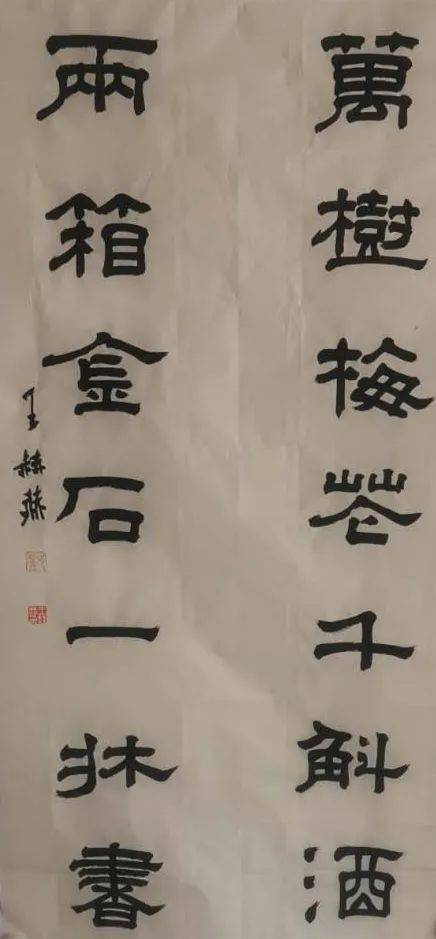 萬樹梅花千斛酒
兩箱金石一牀書